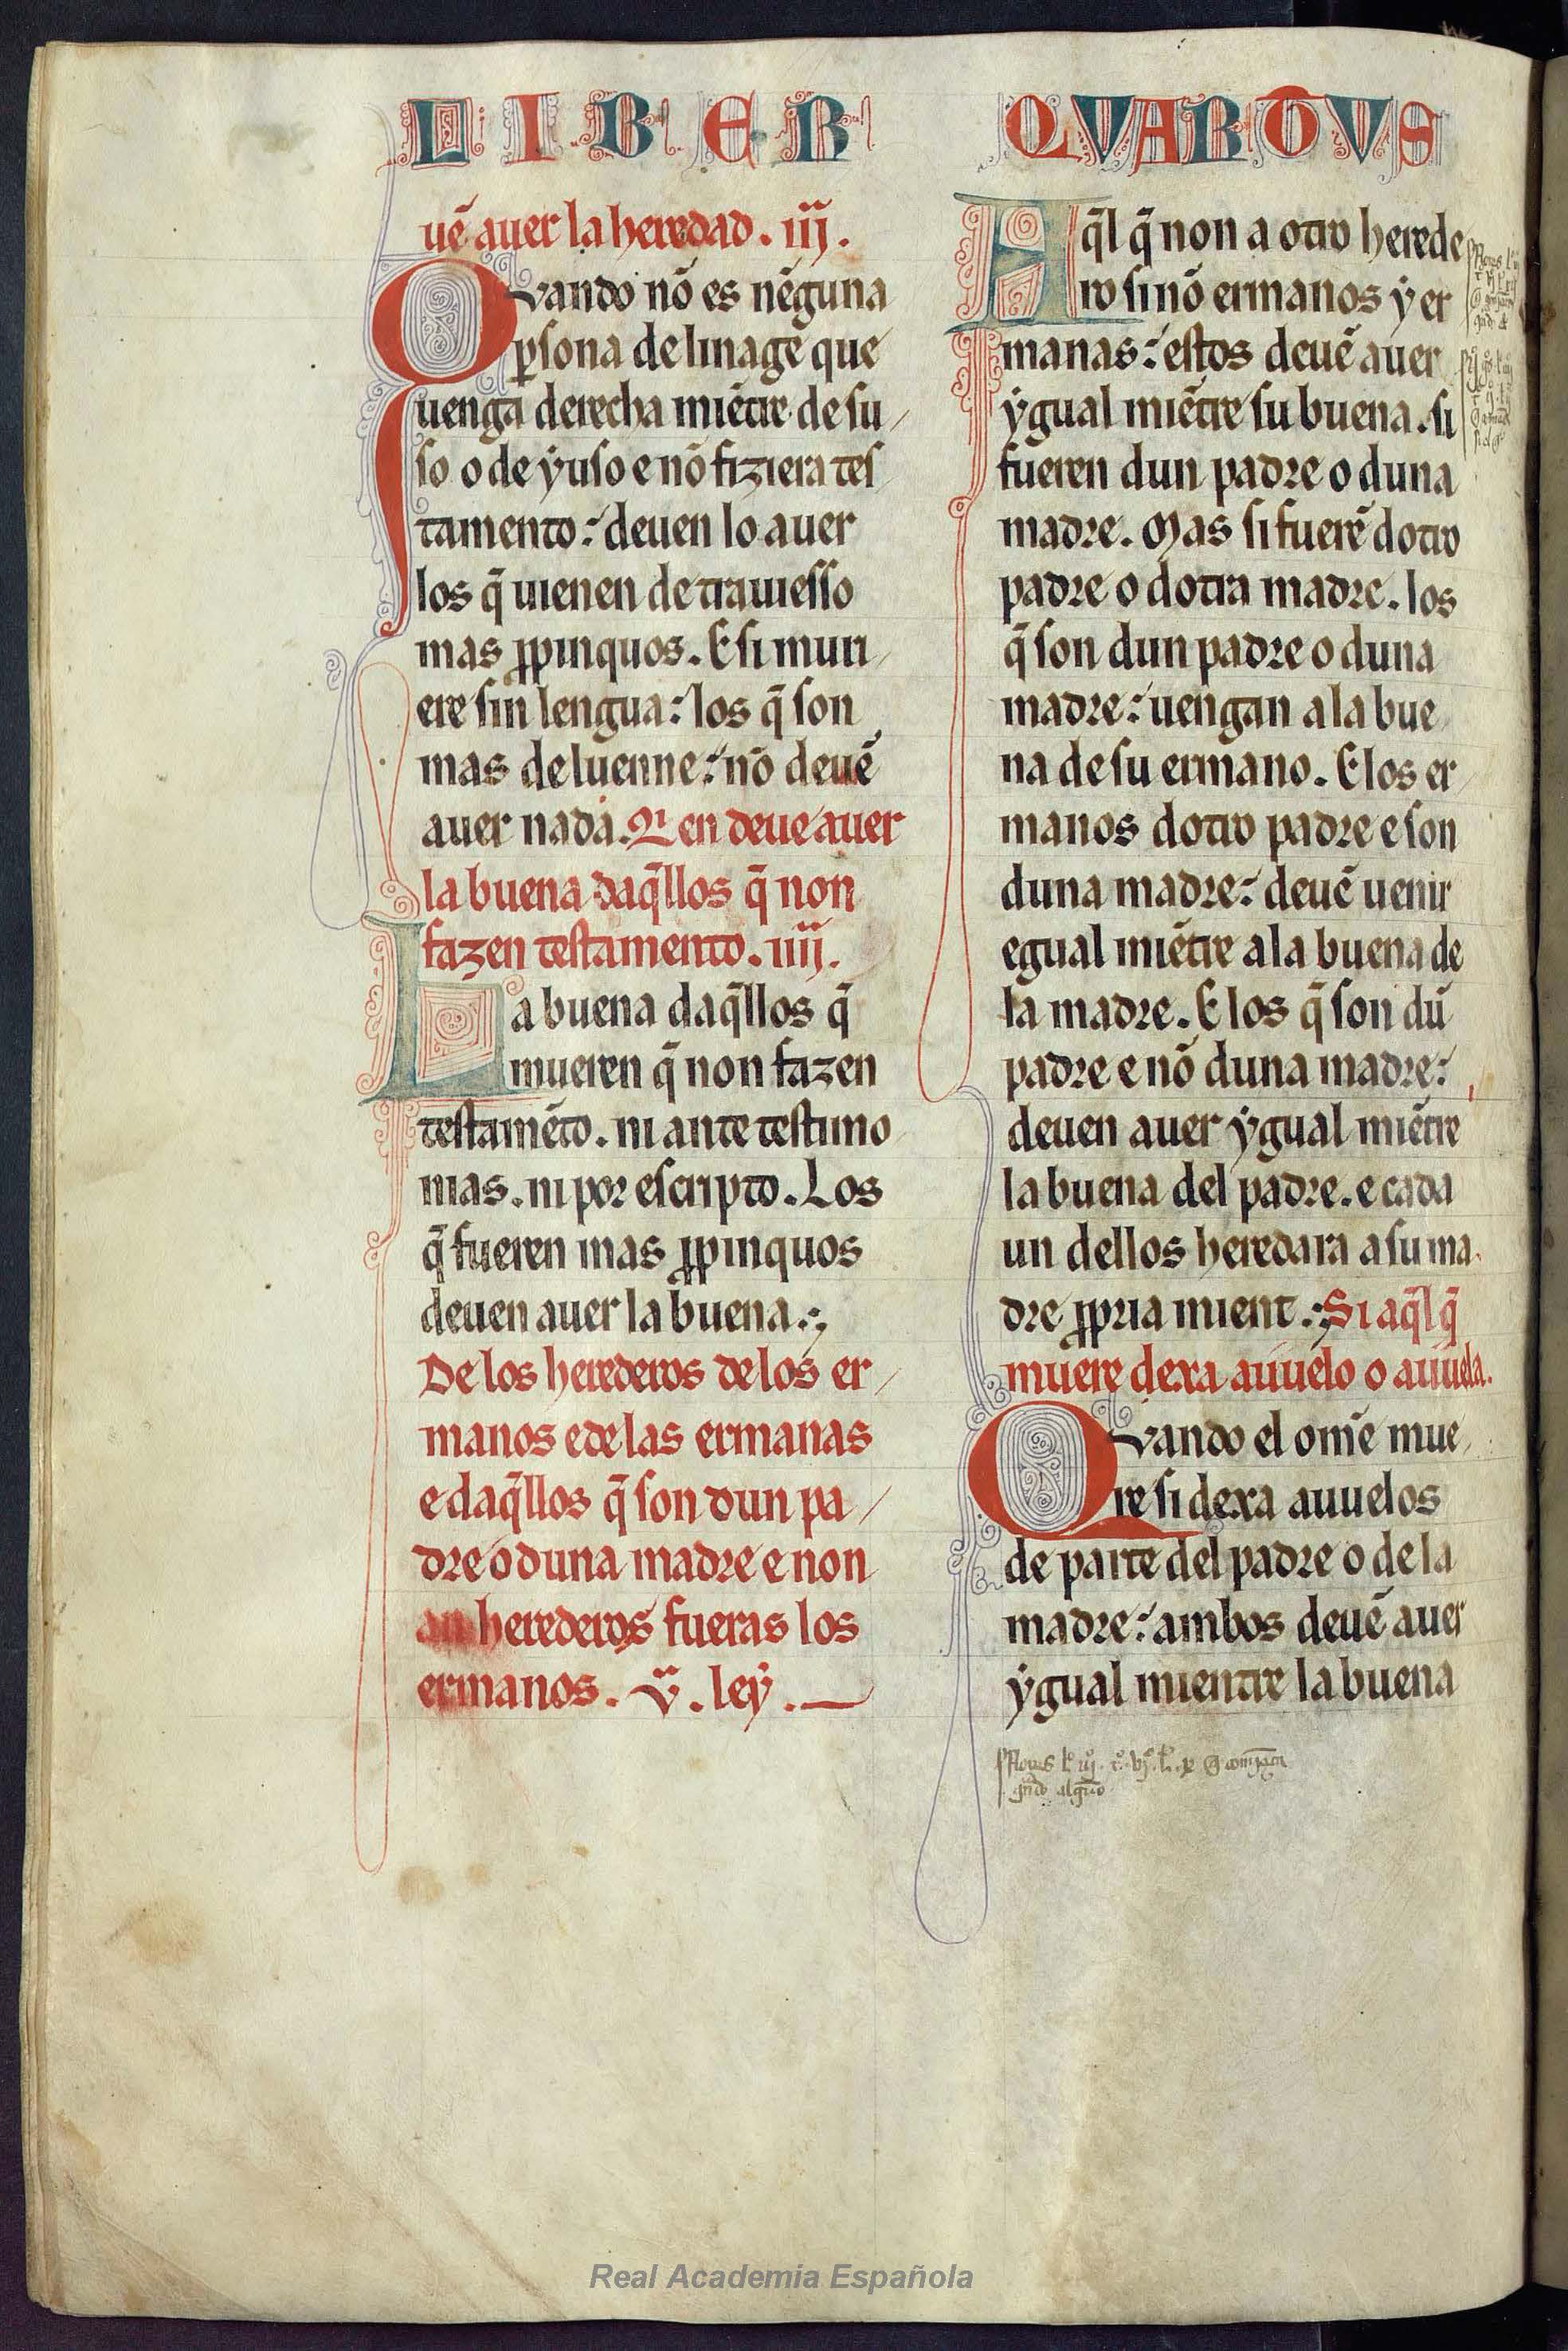 LIBER QVARTOVS
uē auer la heredad. iij.
Quando nō es nēguna
ꝑsona de linage que
uenga derecha miētre de su
so o de yuso e nō fiziera tes
tamento: deuen lo auer
los q̄ uienen de trauiesso
mas ꝓpinquos. E si muri
ere sin lengua: los q̄ son
mas de luenne: nō deuē
auer nada. Q̇en deue auer
la buena daq̄llos q̄ non
fazen testamento. iiij.
La buena daq̄llos q̄
mueren q̄ non fazen
testamēto. ni ante testimo
nias. ni por escripto. Los
q̄ fueren mas ꝓpinquos
deuen auer la buena.
De los herederos de los er
manos e de las ermanas
e daq̄llos q̄ son dun pa
dre o duna madre e non
an herederos fueras los
ermanos. v. ley.
Aq̄l q̄ non a otro herede
ro sinō ermanos y er
manas: estos deuē auer
ygual miētre su buena. si
fueren dun padre o duna
madre. Mas si fuerē dotro
padre o dotra madre. los
q̄ son dun padre o duna
madre: uengan a la bue
na de su ermano. E los er
manos dotro padre e son
duna madre: deuē uenir
egual miētre a la buena de
la madre. E los q̄ son dū
padre e nō duna madre:
deuen auer ygual miētre
la buena del padre. e cada
un dellos heredara a su ma
dre ꝓpria mient. Si aq̄l q̄
muere dexa auuelo o auuela.
Quando el omē mue
re si dexa auuelos
de parte del padre o de la
madre: ambos deuē auer
ygual mientre la buena
Real Academia Española